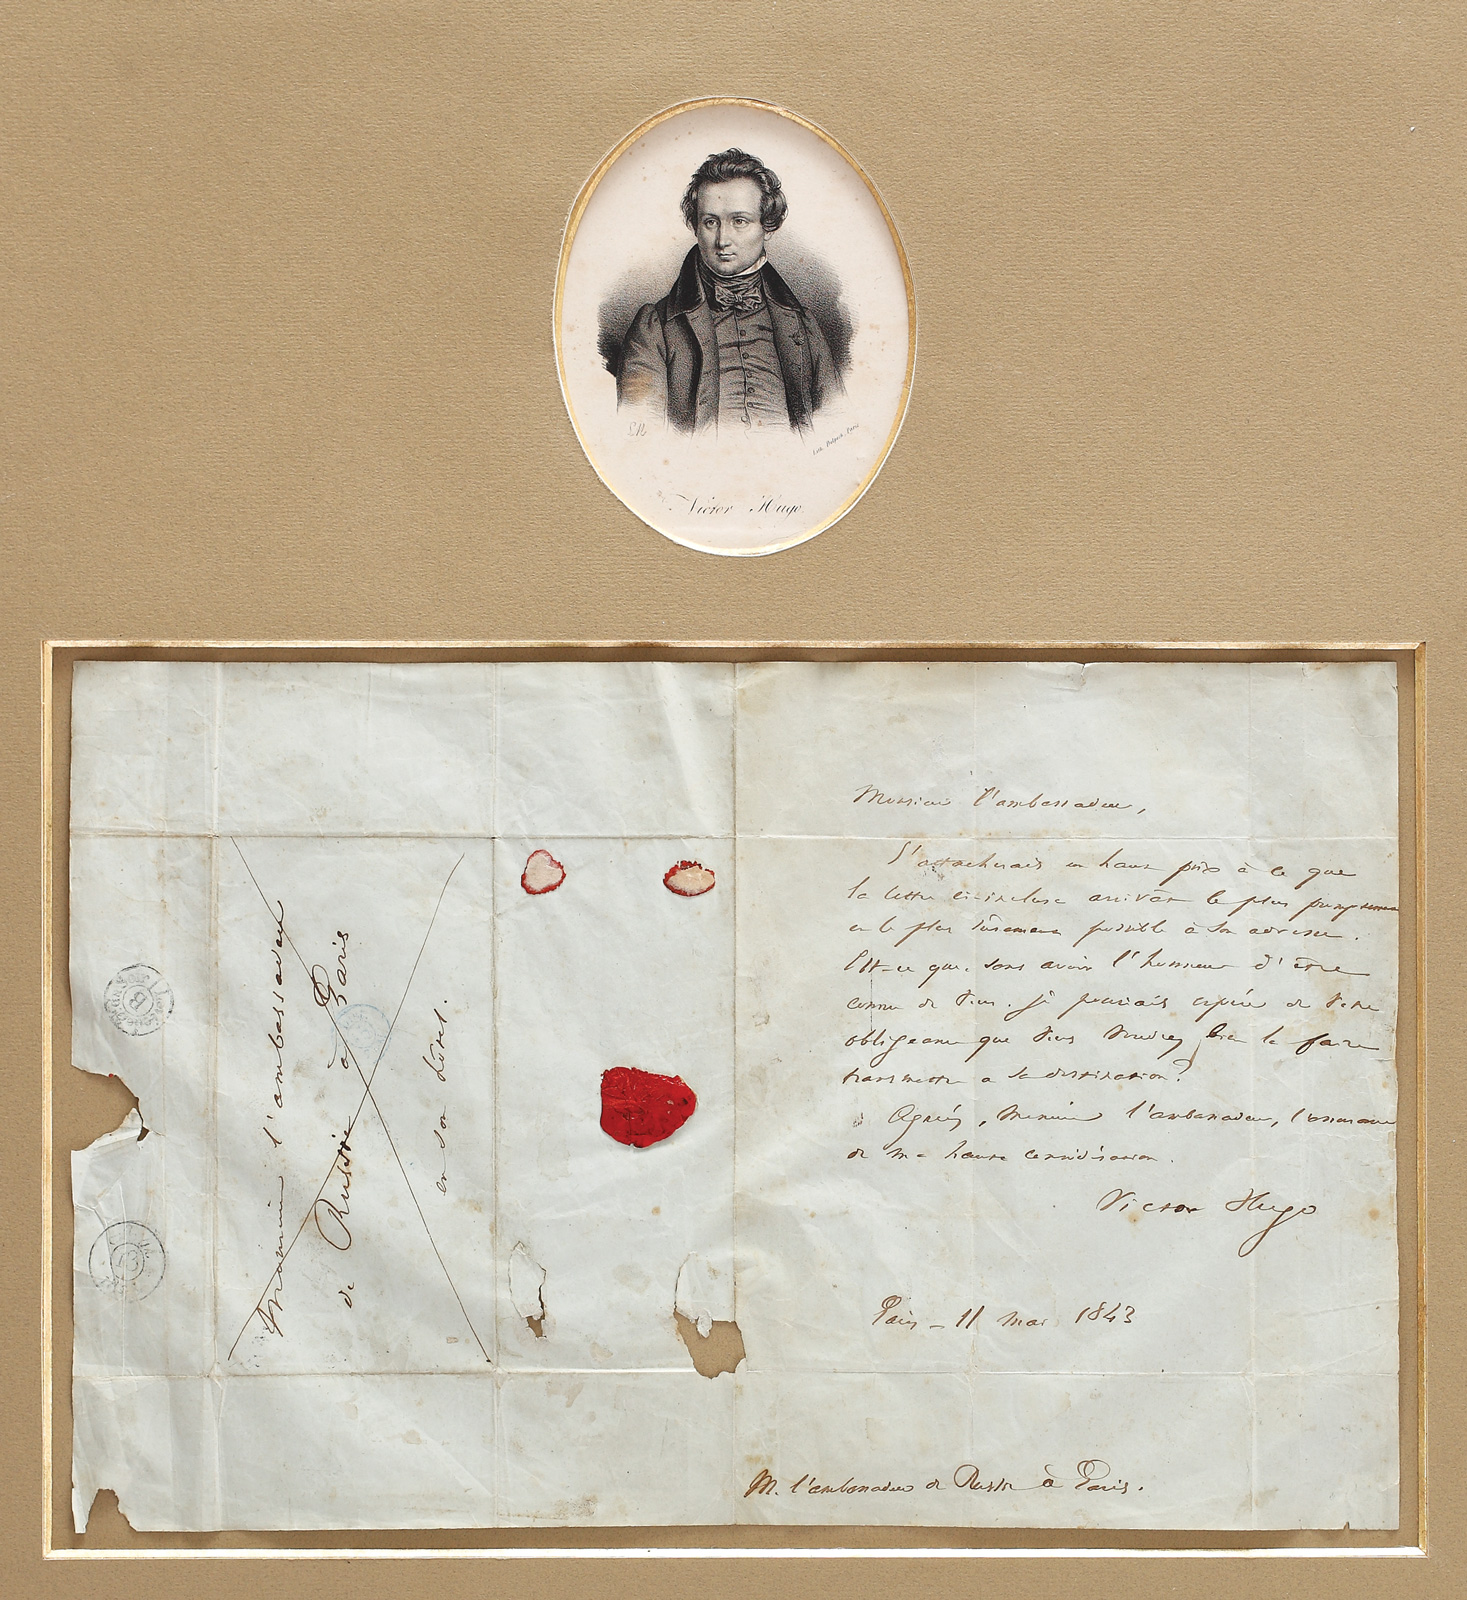 Lith. Delpech, Paris
Victor Hugo
Monsieur l'ambassadeur,
J'attacherais un haut prix à ce que
la lettre ci-incluse arrivât le plus promptement
et le plus sûrement possible à son adresse.
Est-ce que, sans avoir l'honneur d'être
connu de vous, je pourrais espérer de votre
obligeance que vous voudrez bien la faire
transmettre à sa destination ?
Agréez, Monsieur l'ambassadeur, l'assurance
de ma haute considération.
Victor Hugo
Paris - 11 mai 1843
M. l'ambassadeur de Russie à Paris.
Monsieur l'ambassadeur
de Russie à Paris
en son hôtel.